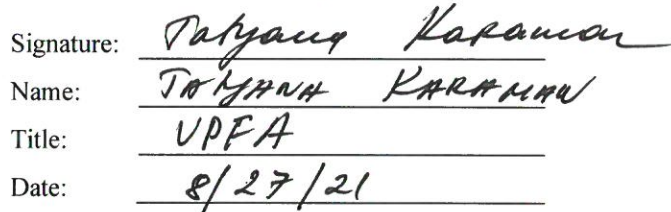 Signature: Tatyana Karaman
Name: TATYANA KARAMAN
Title: VPFA
Date: 8/27/21